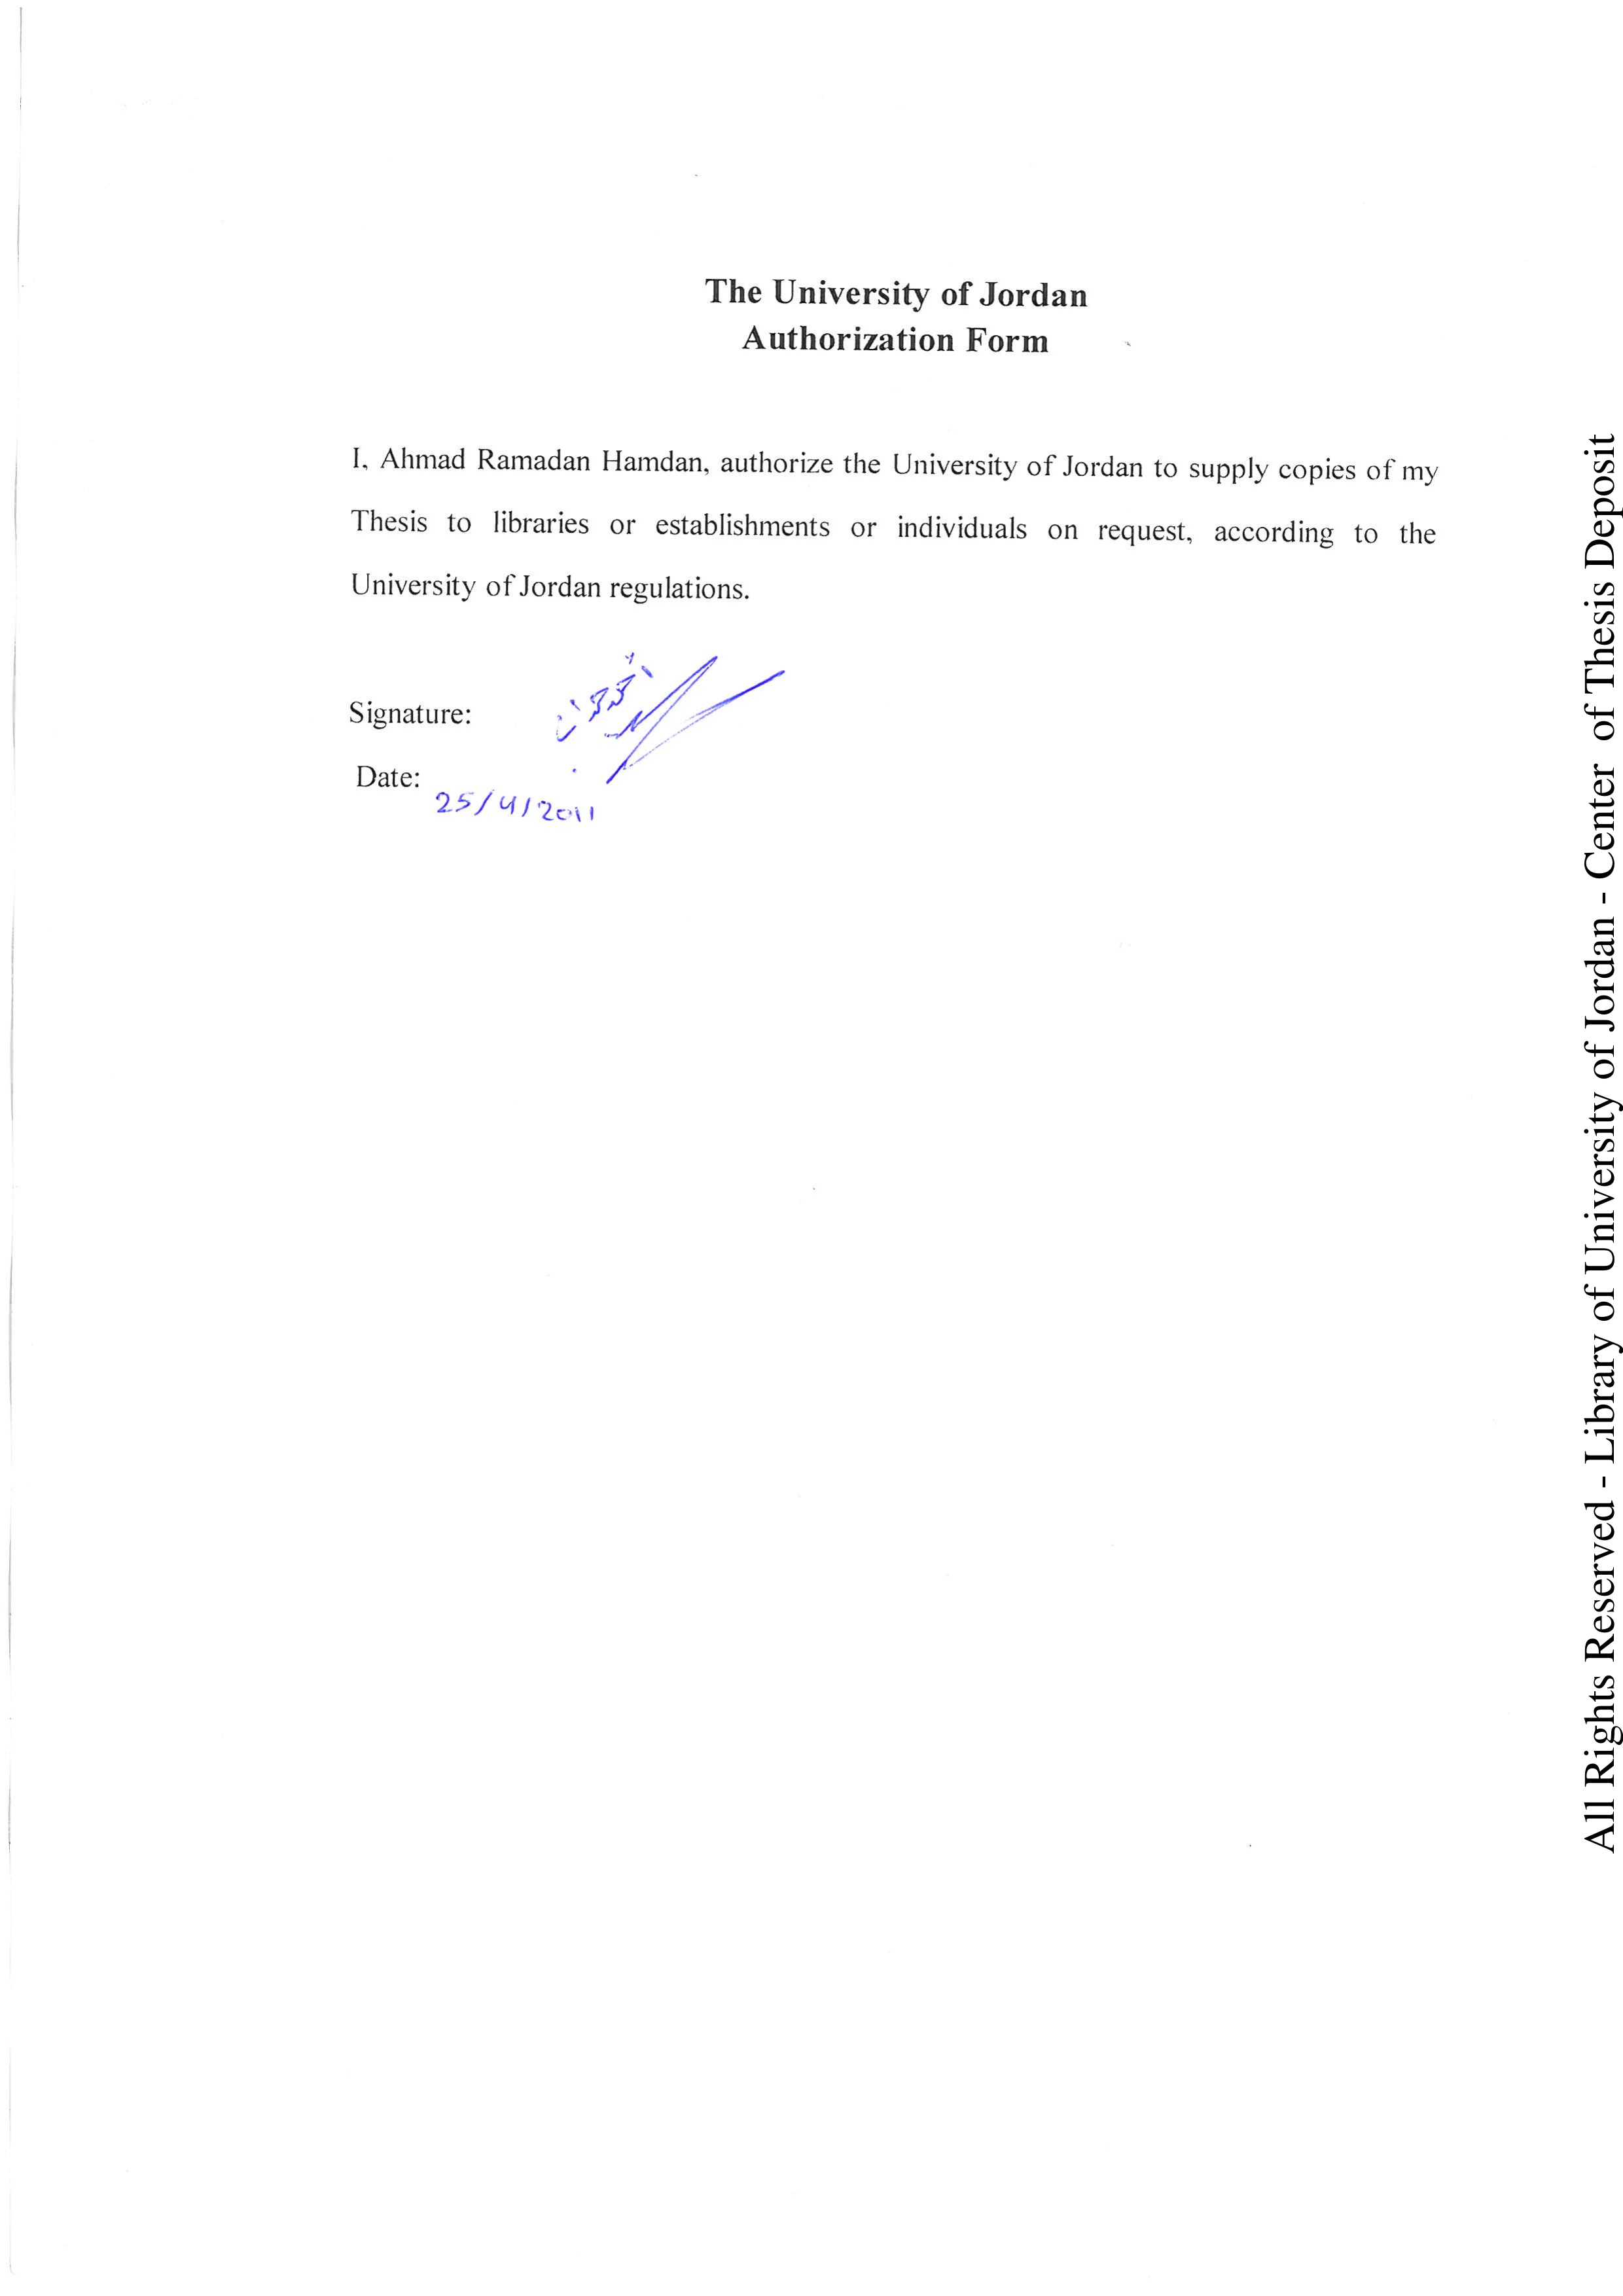 The University of Jordan
Authorization Form
I, Ahmad Ramadan Hamdan, authorize the University of Jordan to supply copies of my
Thesis to libraries or establishments or individuals on request, according to the
University of Jordan regulations.
Signature:
Date:
25/4/2011
All Rights Reserved - Library of University of Jordan - Center of Thesis Deposit